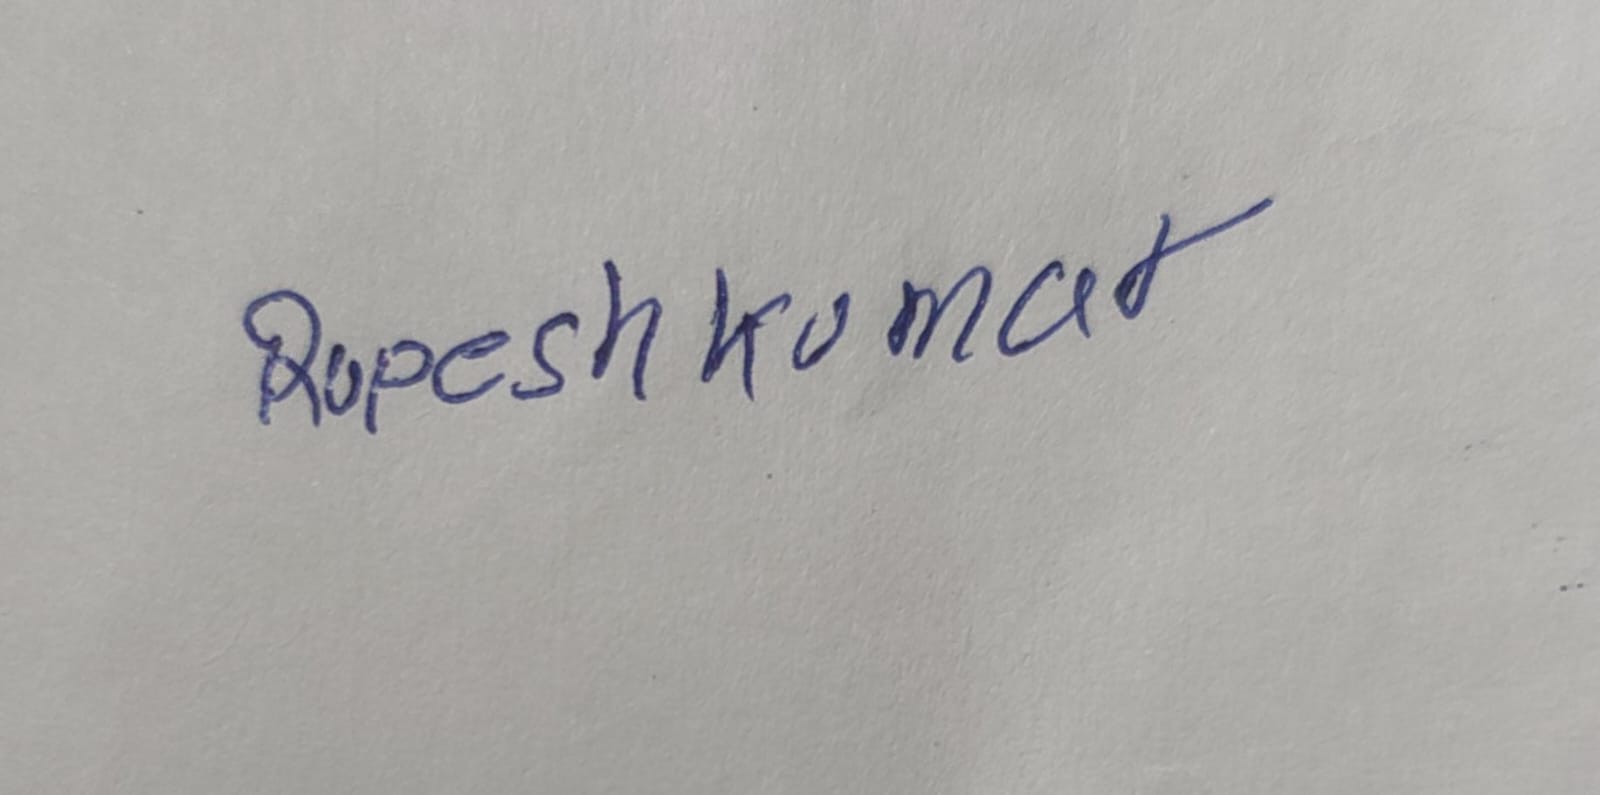 Rupesh kumar